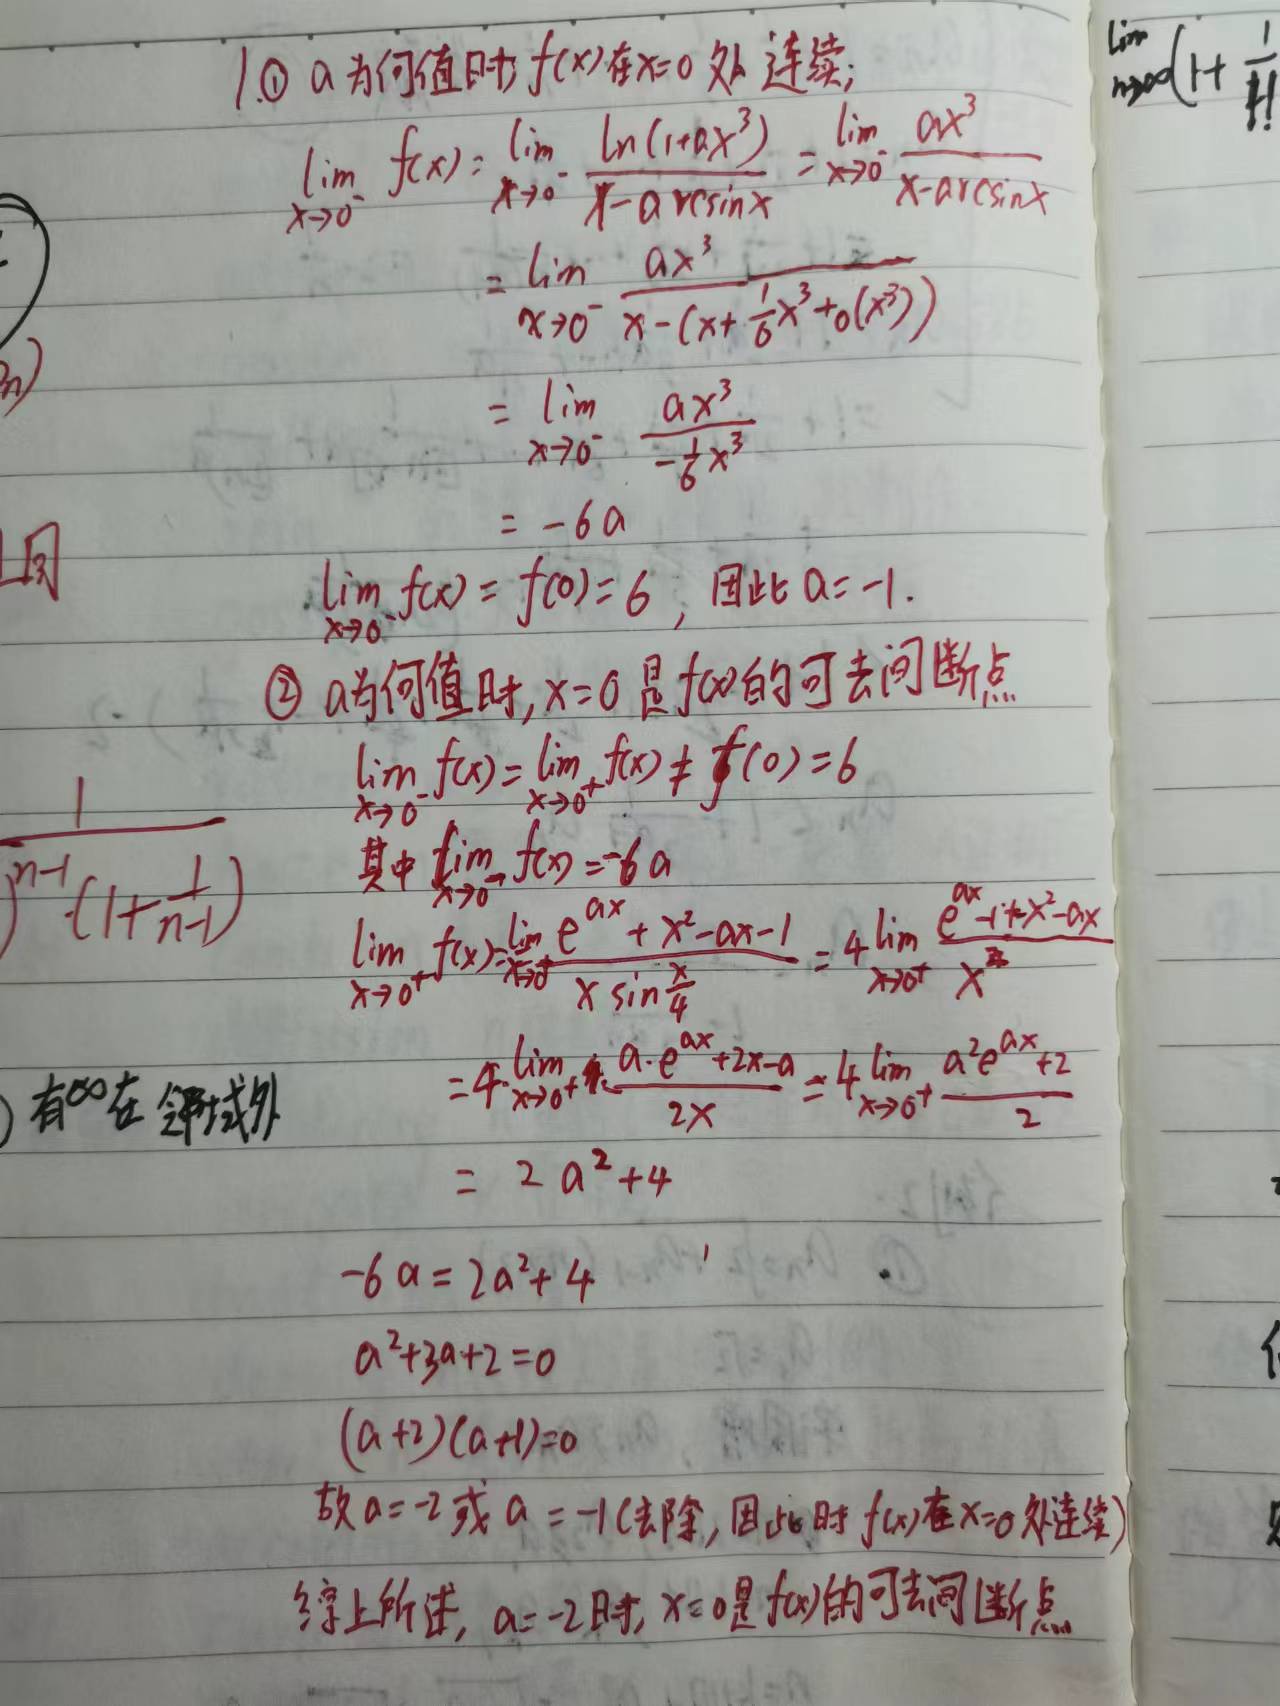 1.① a为何值时,f(x)在x=0处连续;
lim x→0⁻ f(x) = lim x→0⁻ ln(1+ax³)/(x-arcsinx) = lim x→0⁻ ax³/(x-arcsinx)
= lim x→0⁻ ax³/(x-(x+1/6x³+o(x³)))
= lim x→0⁻ ax³/(-1/6x³)
= -6a
lim x→0⁻ f(x) = f(0) = 6, 因此a=-1.
② a为何值时,x=0是f(x)的可去间断点
lim x→0⁻ f(x) = lim x→0⁺ f(x) ≠ f(0) = 6
其中 lim x→0⁻ f(x) = -6a
lim x→0⁺ f(x) = lim x→0⁺ (e^ax + x²-ax-1)/(x sin x/4) = 4 lim x→0⁺ (e^ax-1+x²-ax)/x²
= 4·lim x→0⁺ (a·e^ax+2x-a)/2x = 4 lim x→0⁺ (a²e^ax+2)/2
= 2a²+4
-6a = 2a²+4
a²+3a+2=0
(a+2)(a+1)=0
故a=-2或a=-1(去除,因此时f(x)在x=0处连续)
综上所述,a=-2时,x=0是f(x)的可去间断点
lim n→∞(1+ 1/1!
n)
1
)^n-1·(1+1/(n-1))
)有∞在邻域外